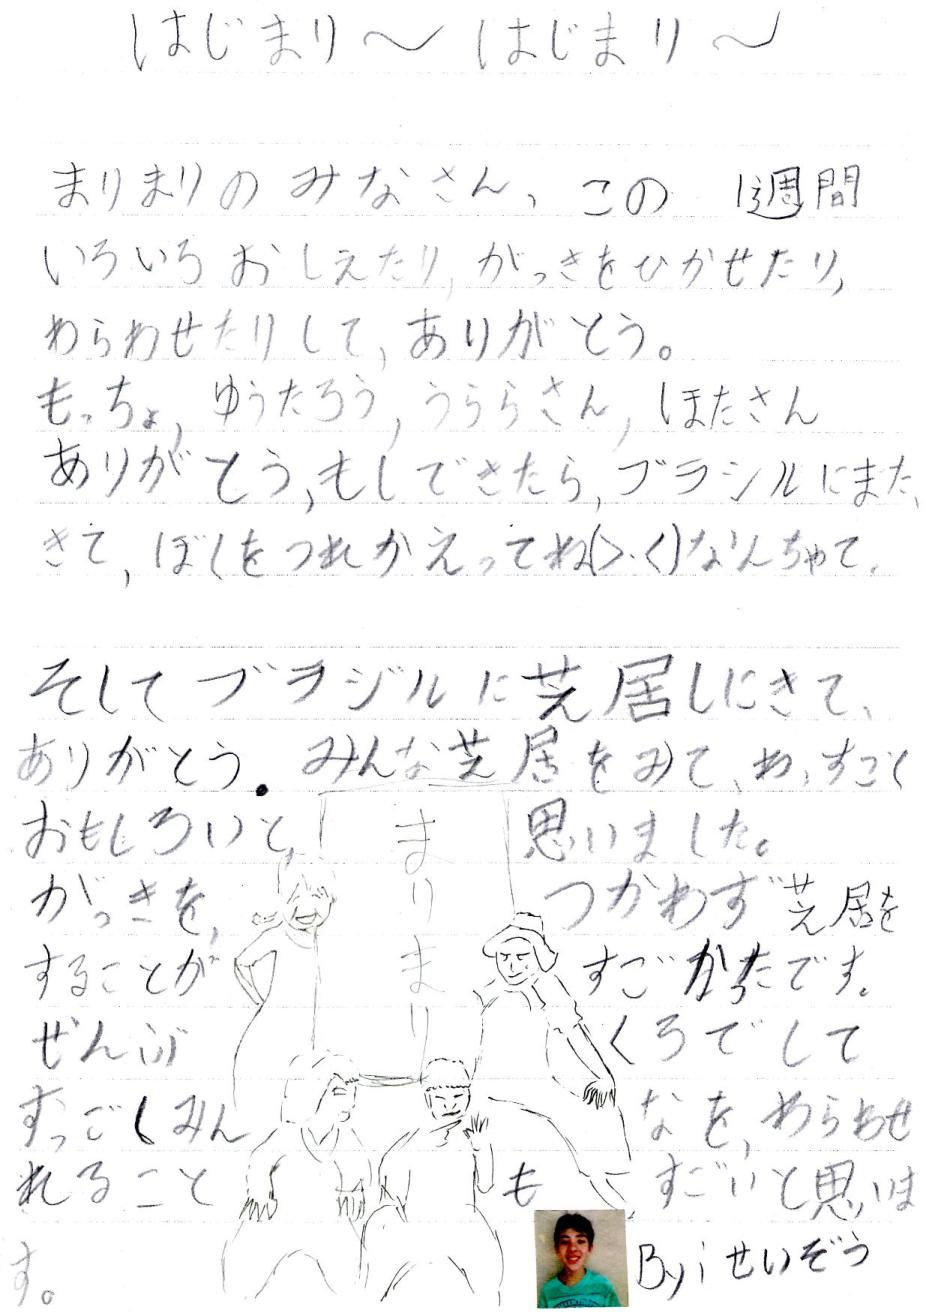 はじまり～ はじまり～
まりまりの みなさん、この 1週間
いろいろ おしえたり, がっきをひかせたり,
わらわせたりして, ありがとう。
もっちょ, ゆうたろう, うららさん, ほたさん
ありがとう, もしできたら, ブラシルにまた、
きて, ぼくをつれかえってね(>.<)なんちゃて.
そしてブラジルに芝居しにきて、
ありがとう. みんな芝居をみて、わ、すごく
おもしろいと, 思いました。
がっきを, つかわず 芝居を
することが すごかったです。
ぜんぶ くろでして
すっごくみん なを, わらわせ
れること も すごいと思いま
す。
まりまり
By; せいぞう